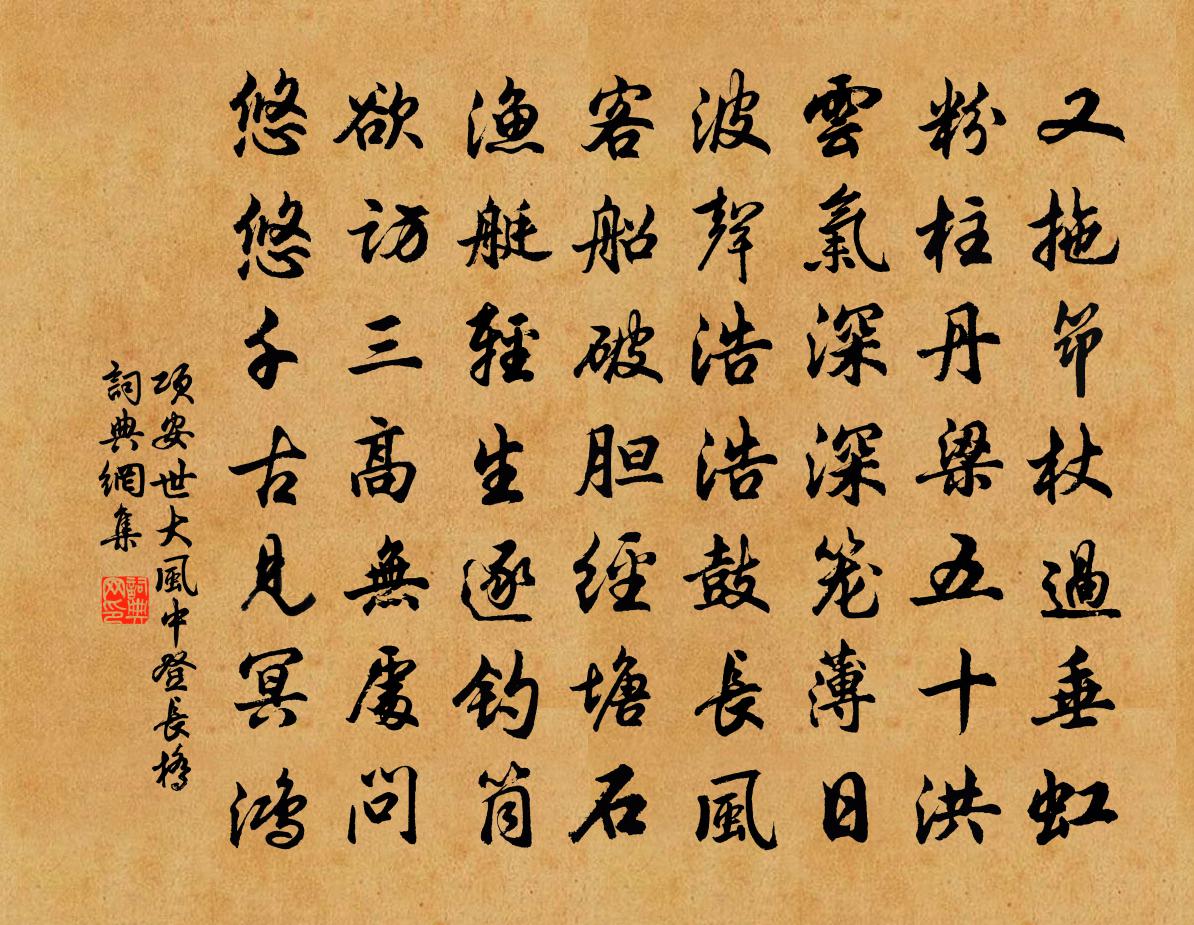 又拖笻杖過垂虹
粉柱丹梁五十洪
雲氣深深笼薄日
波聲浩浩鼓長風
客船破胆經塘石
漁艇輕生逐釣筒
欲访三高無處問
悠悠千古見冥鴻
项安世大風中登長橋
詞典網集
詞典
网印